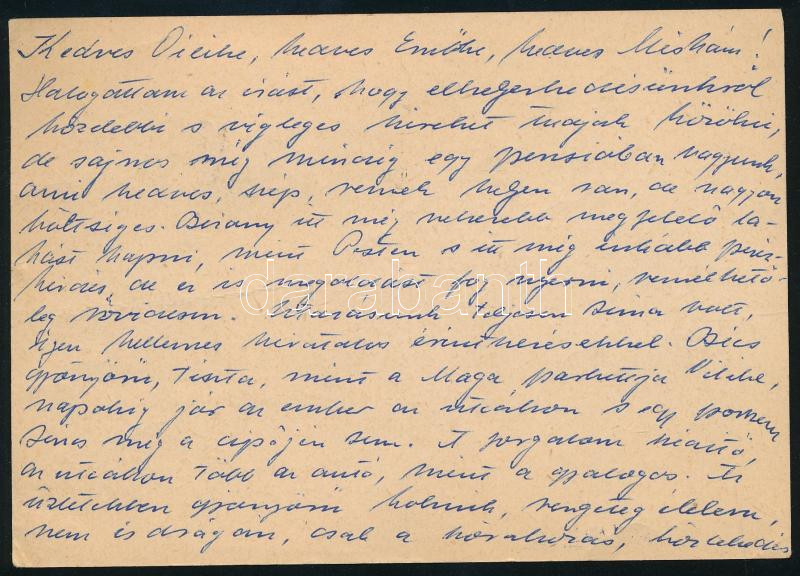 Kedves Vicike, kedves Emőke, kedves Miskám!
Halogattam az írást, hogy elhelyezkedésünkről
közelebbi s végleges híreket tudjak közölni,
de sajnos még mindig egy penzióban vagyunk,
ami kedves, szép, remek helyen van, de nagyon
költséges. Bizony itt még nehezebb megfelelő la-
kást kapni, mint Pesten s itt még inkább pénz-
kérdés, de ez is megoldást fog nyerni, remélhető-
leg rövidesen. Utazásunk teljesen sima volt,
igen kellemes hivatalos érintkezésekkel. Bécs
gyönyörű, tiszta, mint a Maga parkettja Vicike,
napokig jár az ember az utcákon s egy porszem
sincs még a cipőjén sem. A forgalom
az utcákon több az autó, mint a gyalogos. Az
üzletekben gyönyörű holmik, rengeteg élelem,
nem is drágán, csak a közlekedés
darabanth